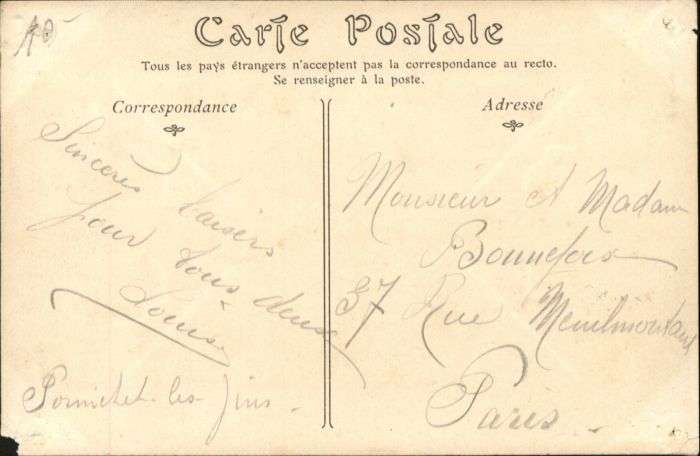 Carte Postale
Tous les pays étrangers n'acceptent pas la correspondance au recto.
Se renseigner à la poste.
Correspondance
Sincères baisers
pour tous deux
Louis
Pornichet-les-Pins.
Adresse
Monsieur et Madame
Bonnefois
37 Rue Ménilmontant
Paris.